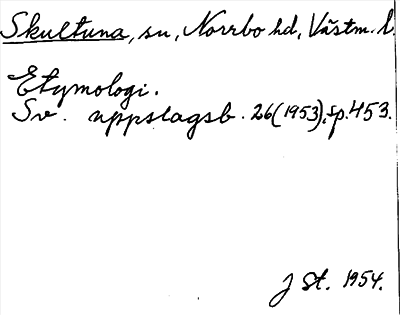 Skultuna, sn, Norrbo hd, Västm. l.
Etymologi.
Sv. uppslagsb. 26(1953), sp. 453.
J St. 1954.